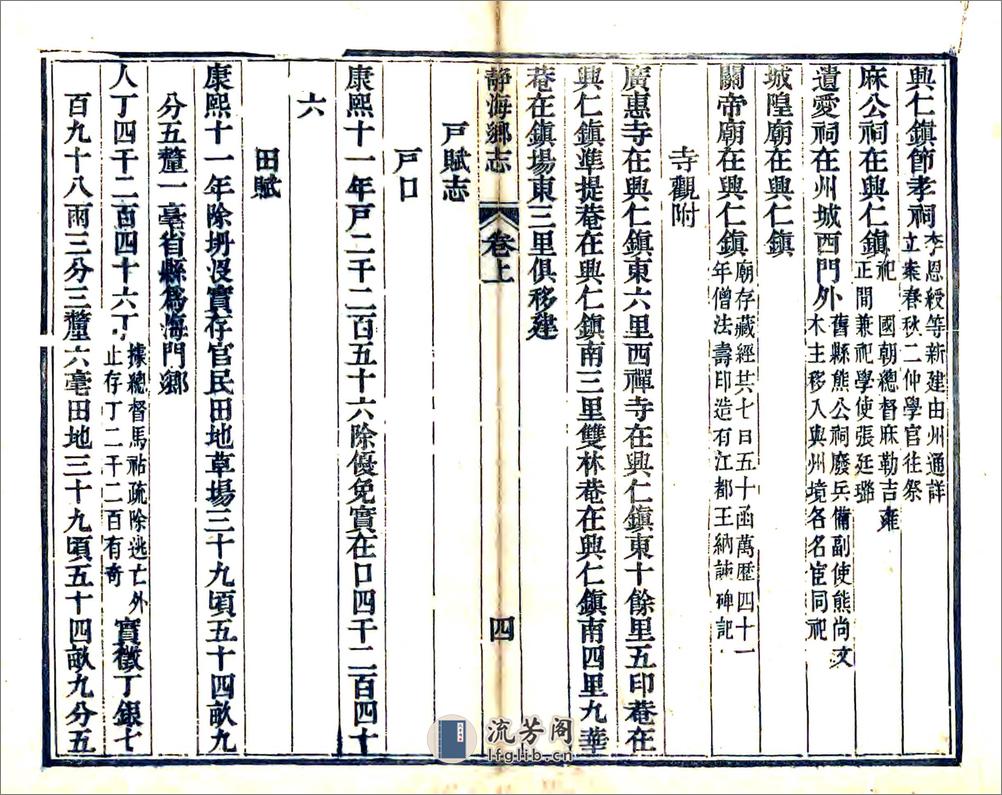 興仁鎮節孝祠李恩綬等新建由州通詳立案春秋二仲學官往祭
麻公祠在興仁鎮祀國朝總督麻勒吉雍正間兼祀學使張廷璐
遺愛祠在州城西門外舊縣熊公祠廢兵備副使熊尚文木主移入與州境各名宦同祀
城隍廟在興仁鎮
關帝廟在興仁鎮廟存藏經共七日五十函萬歷四十一年僧法壽印造有江都王納諫碑記
寺觀附
廣惠寺在興仁鎮東六里西禪寺在興仁鎮東十餘里五印菴在
興仁鎮準提菴在興仁鎮南三里雙林菴在興仁鎮南四里九華
菴在鎮場東三里俱移建
靜海鄉志 卷上 四
戸賦志
戸口
康熙十一年戸二千二百五十六除優免實在口四千二百四十
六
田賦
康熙十一年除坍沒實存官民田地草場三十九頃五十四畝九
分五釐一毫省縣爲海門鄉
人丁四千二百四十六丁據總督馬祜疏除逃亡外止存丁二千二百有奇實徵丁銀七
百九十八兩三分三釐六毫田地三十九頃五十四畝九分五
流芳阁
lfglib.cn